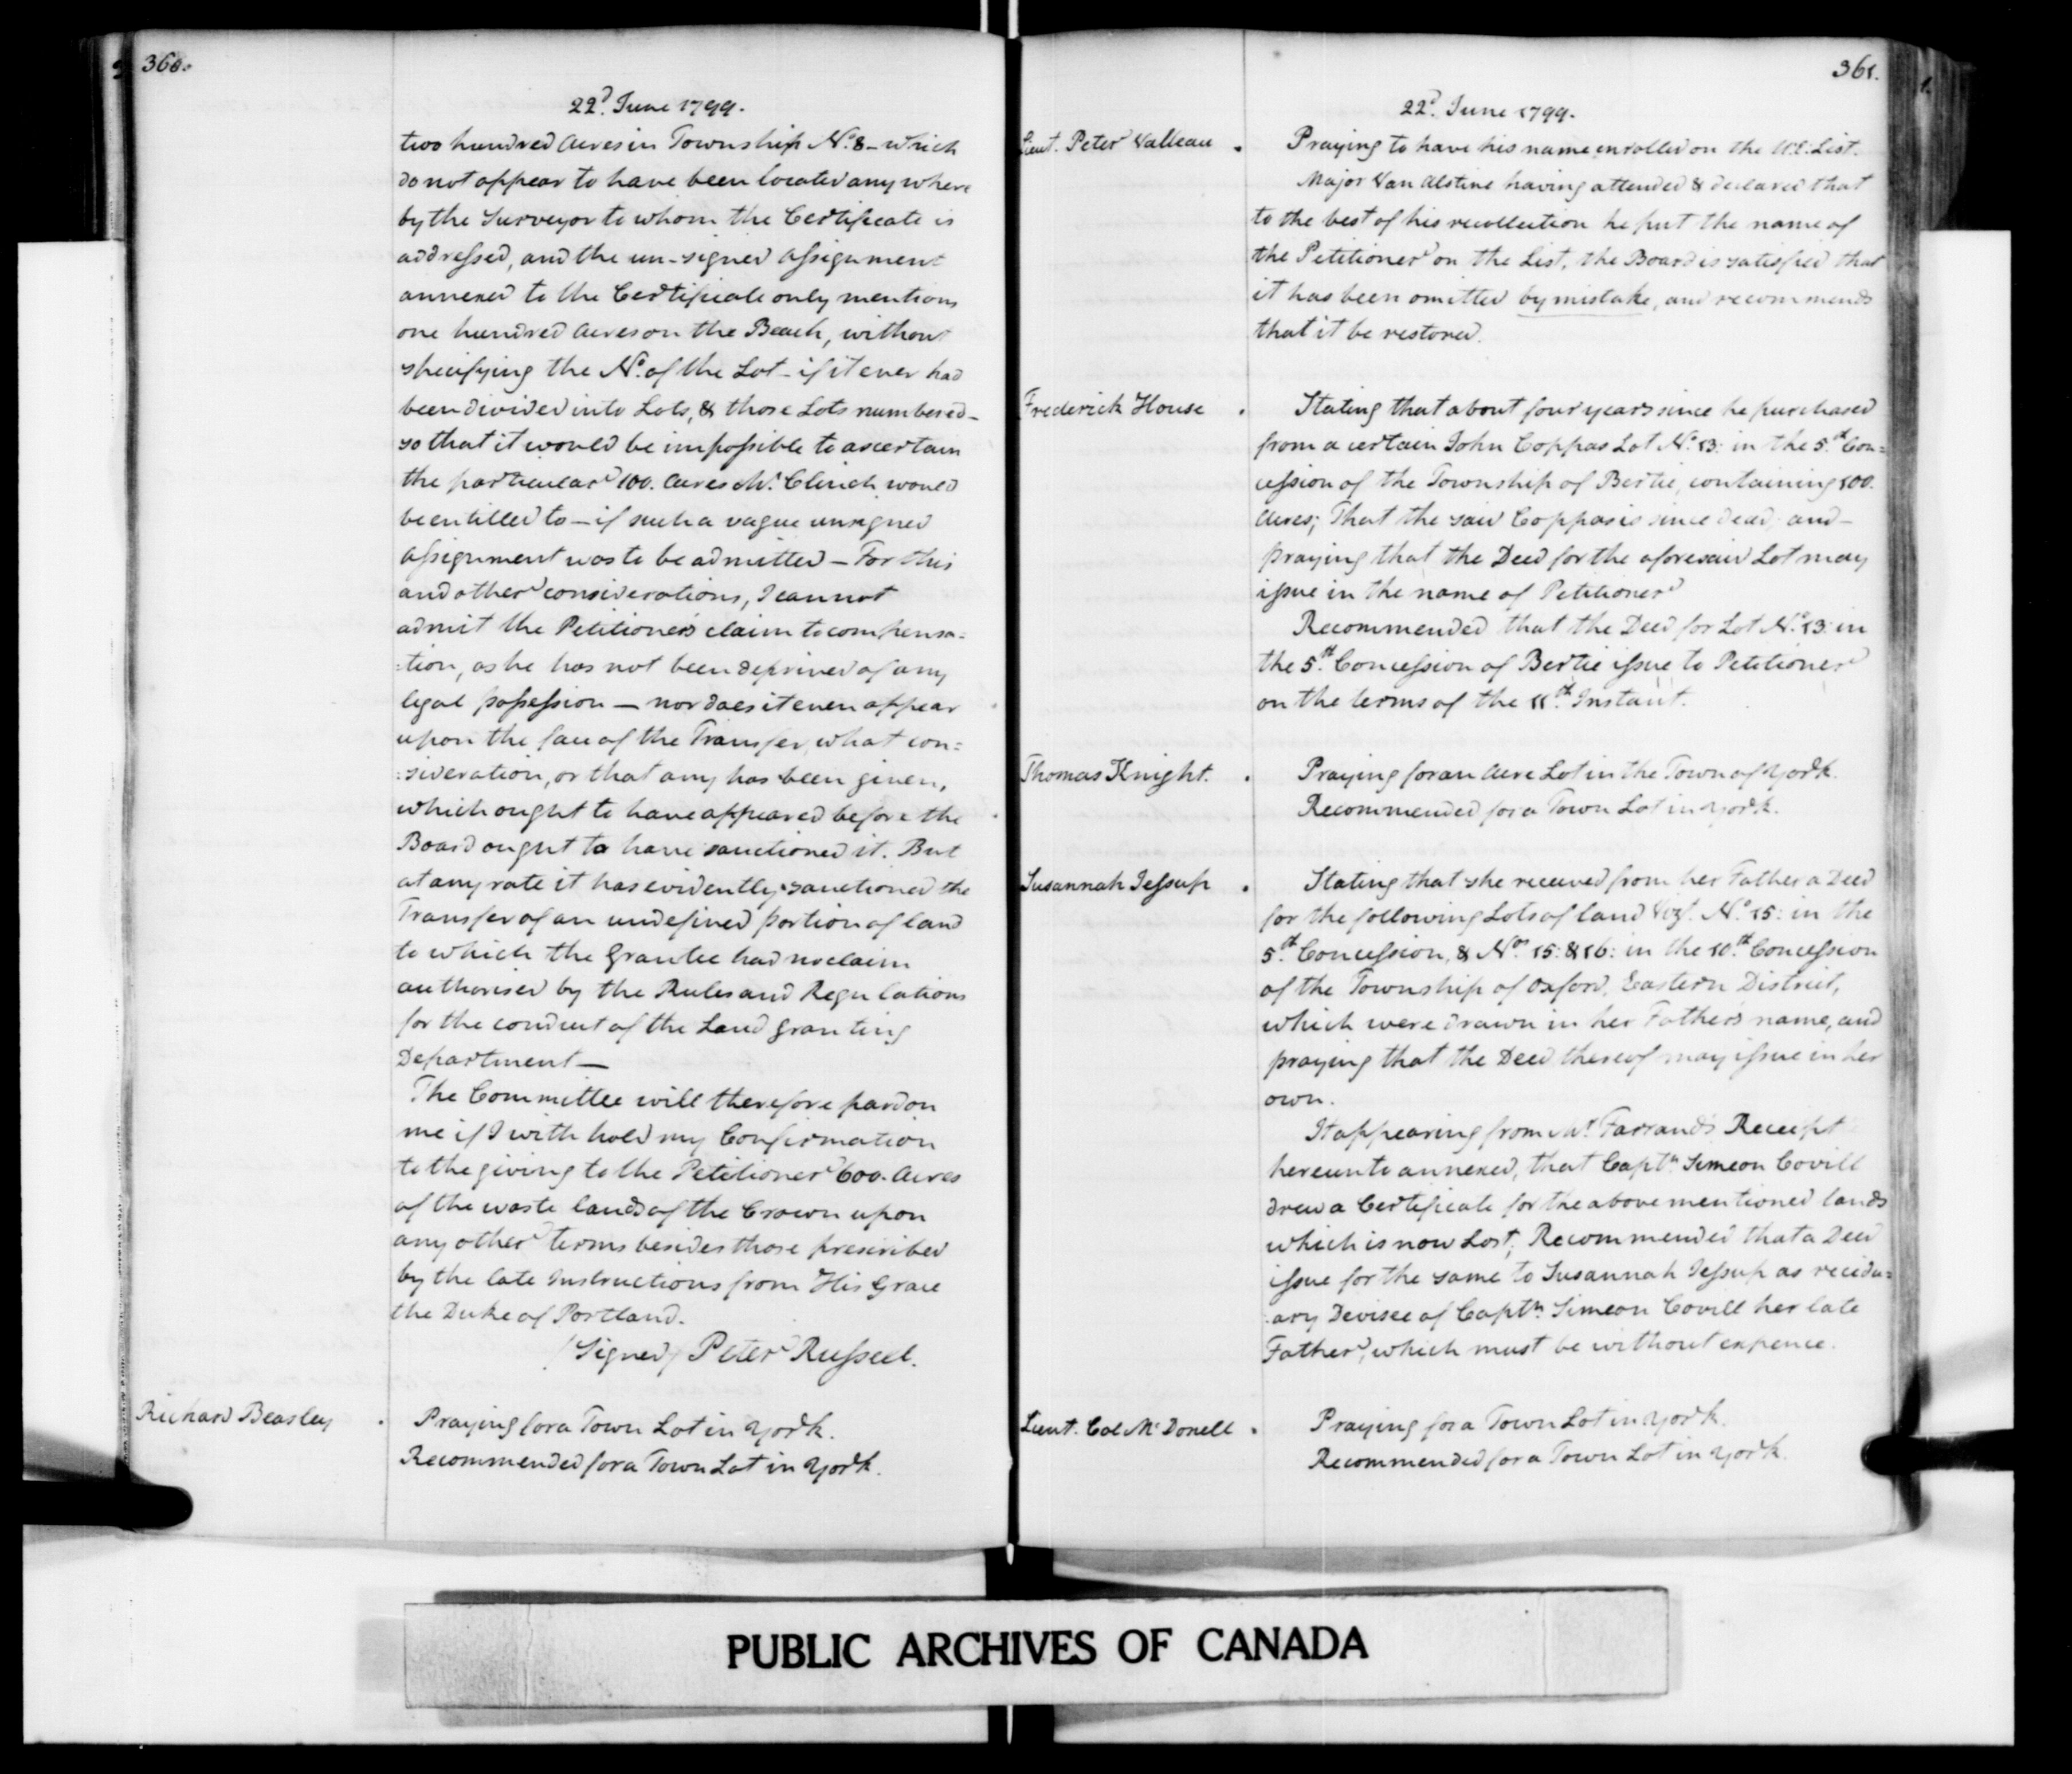 360.
22d. June 1799.
two hundred Acres in Township No. 8 - which
do not appear to have been located any where
by the Surveyor to whom the Certificate is
addressed, and the un-signed Assignment
annexed to the Certificate only mentions
one hundred Acres on the Beach, without
specifying the No. of the Lot - if it ever had
been divided into Lots, & those Lots numbered -
so that it would be impossible to ascertain
the particular 100. Acres Mr. Clinch would
be entitled to — if such a vague unsigned
Assignment was to be admitted — For this
and other considerations, I cannot
admit the Petitioners claim to compensa=
:tion, as he has not been deprived of any
legal possession — nor does it even appear
upon the face of the Transfer, what con:
:sideration, or that any has been given,
which ought to have appeared before the
Board ought to have sanctioned it. But
at any rate it has evidently sanctioned the
Transfer of an undefined portion of land
to which the Grantee had no claim
authorised by the Rules and Regulations
for the conduct of the Land granting
Department —
The Committee will therefore pardon
me if I with hold my Confirmation
to the giving to the Petitioner 600. Acres
of the waste lands of the Crown upon
any other terms besides those prescribed
by the late Instructions from His Grace
the Duke of Portland.
(Signed) Peter Russell.
Richard Beasley . Praying for a Town Lot in York.
Recommended for a Town Lot in York.
361.
22d. June 1799.
Lieut. Peter Valleau . Praying to have his name enrolled on the U.E. List.
Major Van Alstine having attended & declared that
to the best of his recollection he put the name of
the Petitioner on the List, the Board is satisfied that
it has been omitted by mistake, and recommends
that it be restored.
Frederick House . Stating that about four years since he purchased
from a certain John Coppas Lot No. 13: in the 5th. Con=
cession of the Township of Bertie, containing 100.
Acres; That the said Coppas is since dead, and —
praying that the Deed for the aforesaid Lot may
issue in the name of Petitioner
Recommended that the Deed for Lot No. 13: in
the 5th. Concession of Bertie issue to Petitioner
on the terms of the 11th. Instant.
Thomas Knight. . Praying for an Acre Lot in the Town of York.
Recommended for a Town Lot in York.
Susannah Jessup . Stating that she received from her Father a Deed
for the following Lots of land Vizt. No. 15: in the
5th. Concession, & Nos. 15: & 16: in the 10th. Concession
of the Township of Oxford, Eastern District,
which were drawn in her Fathers name, and
praying that the Deed thereof may issue in her
own.
It appearing from Mr. Farrands Receipt
hereunto annexed, that Captn. Simeon Covill
drew a Certificate for the above mentioned lands
which is now Lost; Recommended that a Deed
issue for the same to Susannah Jessup as recidu=
:ary Devisee of Captn. Simeon Covill her late
Father, which must be without expence.
Lieut. Col McDonell . Praying for a Town Lot in York.
Recommended for a Town Lot in York.
PUBLIC ARCHIVES OF CANADA